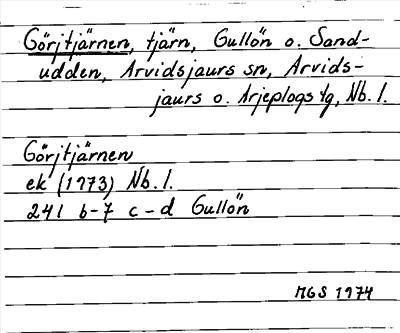 Görjtjärnen, tjärn, Gullön o. Sand-
udden, Arvidsjaurs sn, Arvids-
jaurs o. Arjeplogs tg, Nb. l.
Görjtjärnen
ek (1973) Nb. l.
241 b-7 c-d Gullön
MGS 1974